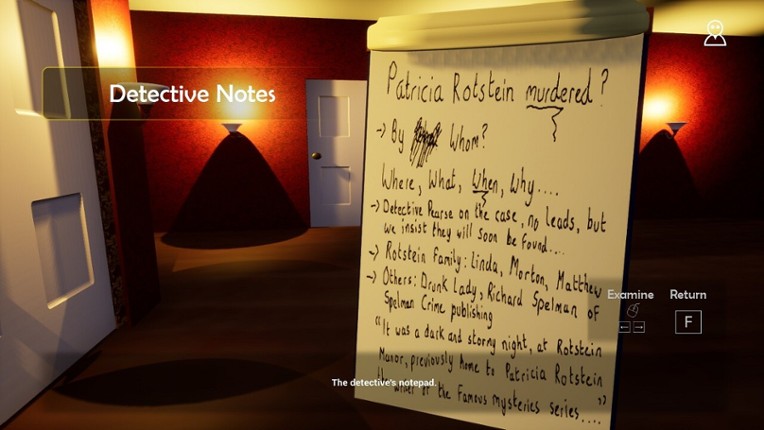 Detective Notes
Patricia Rotstein murdered?
-> By Whom?
Where, What, When, Why....
-> Detective Pearse on the case, no leads, but
we insist they will soon be found....
-> Rotstein Family: Linda, Morton, Matthew
-> Others: Drunk Lady, Richard Spelman of
Spelman Crime publishing
"It was a dark and stormy night, at Rotstein
Manor, previously home to Patricia Rotstein
the writer of the Famous mysteries series....."
Examine Return
F
The detective's notepad.